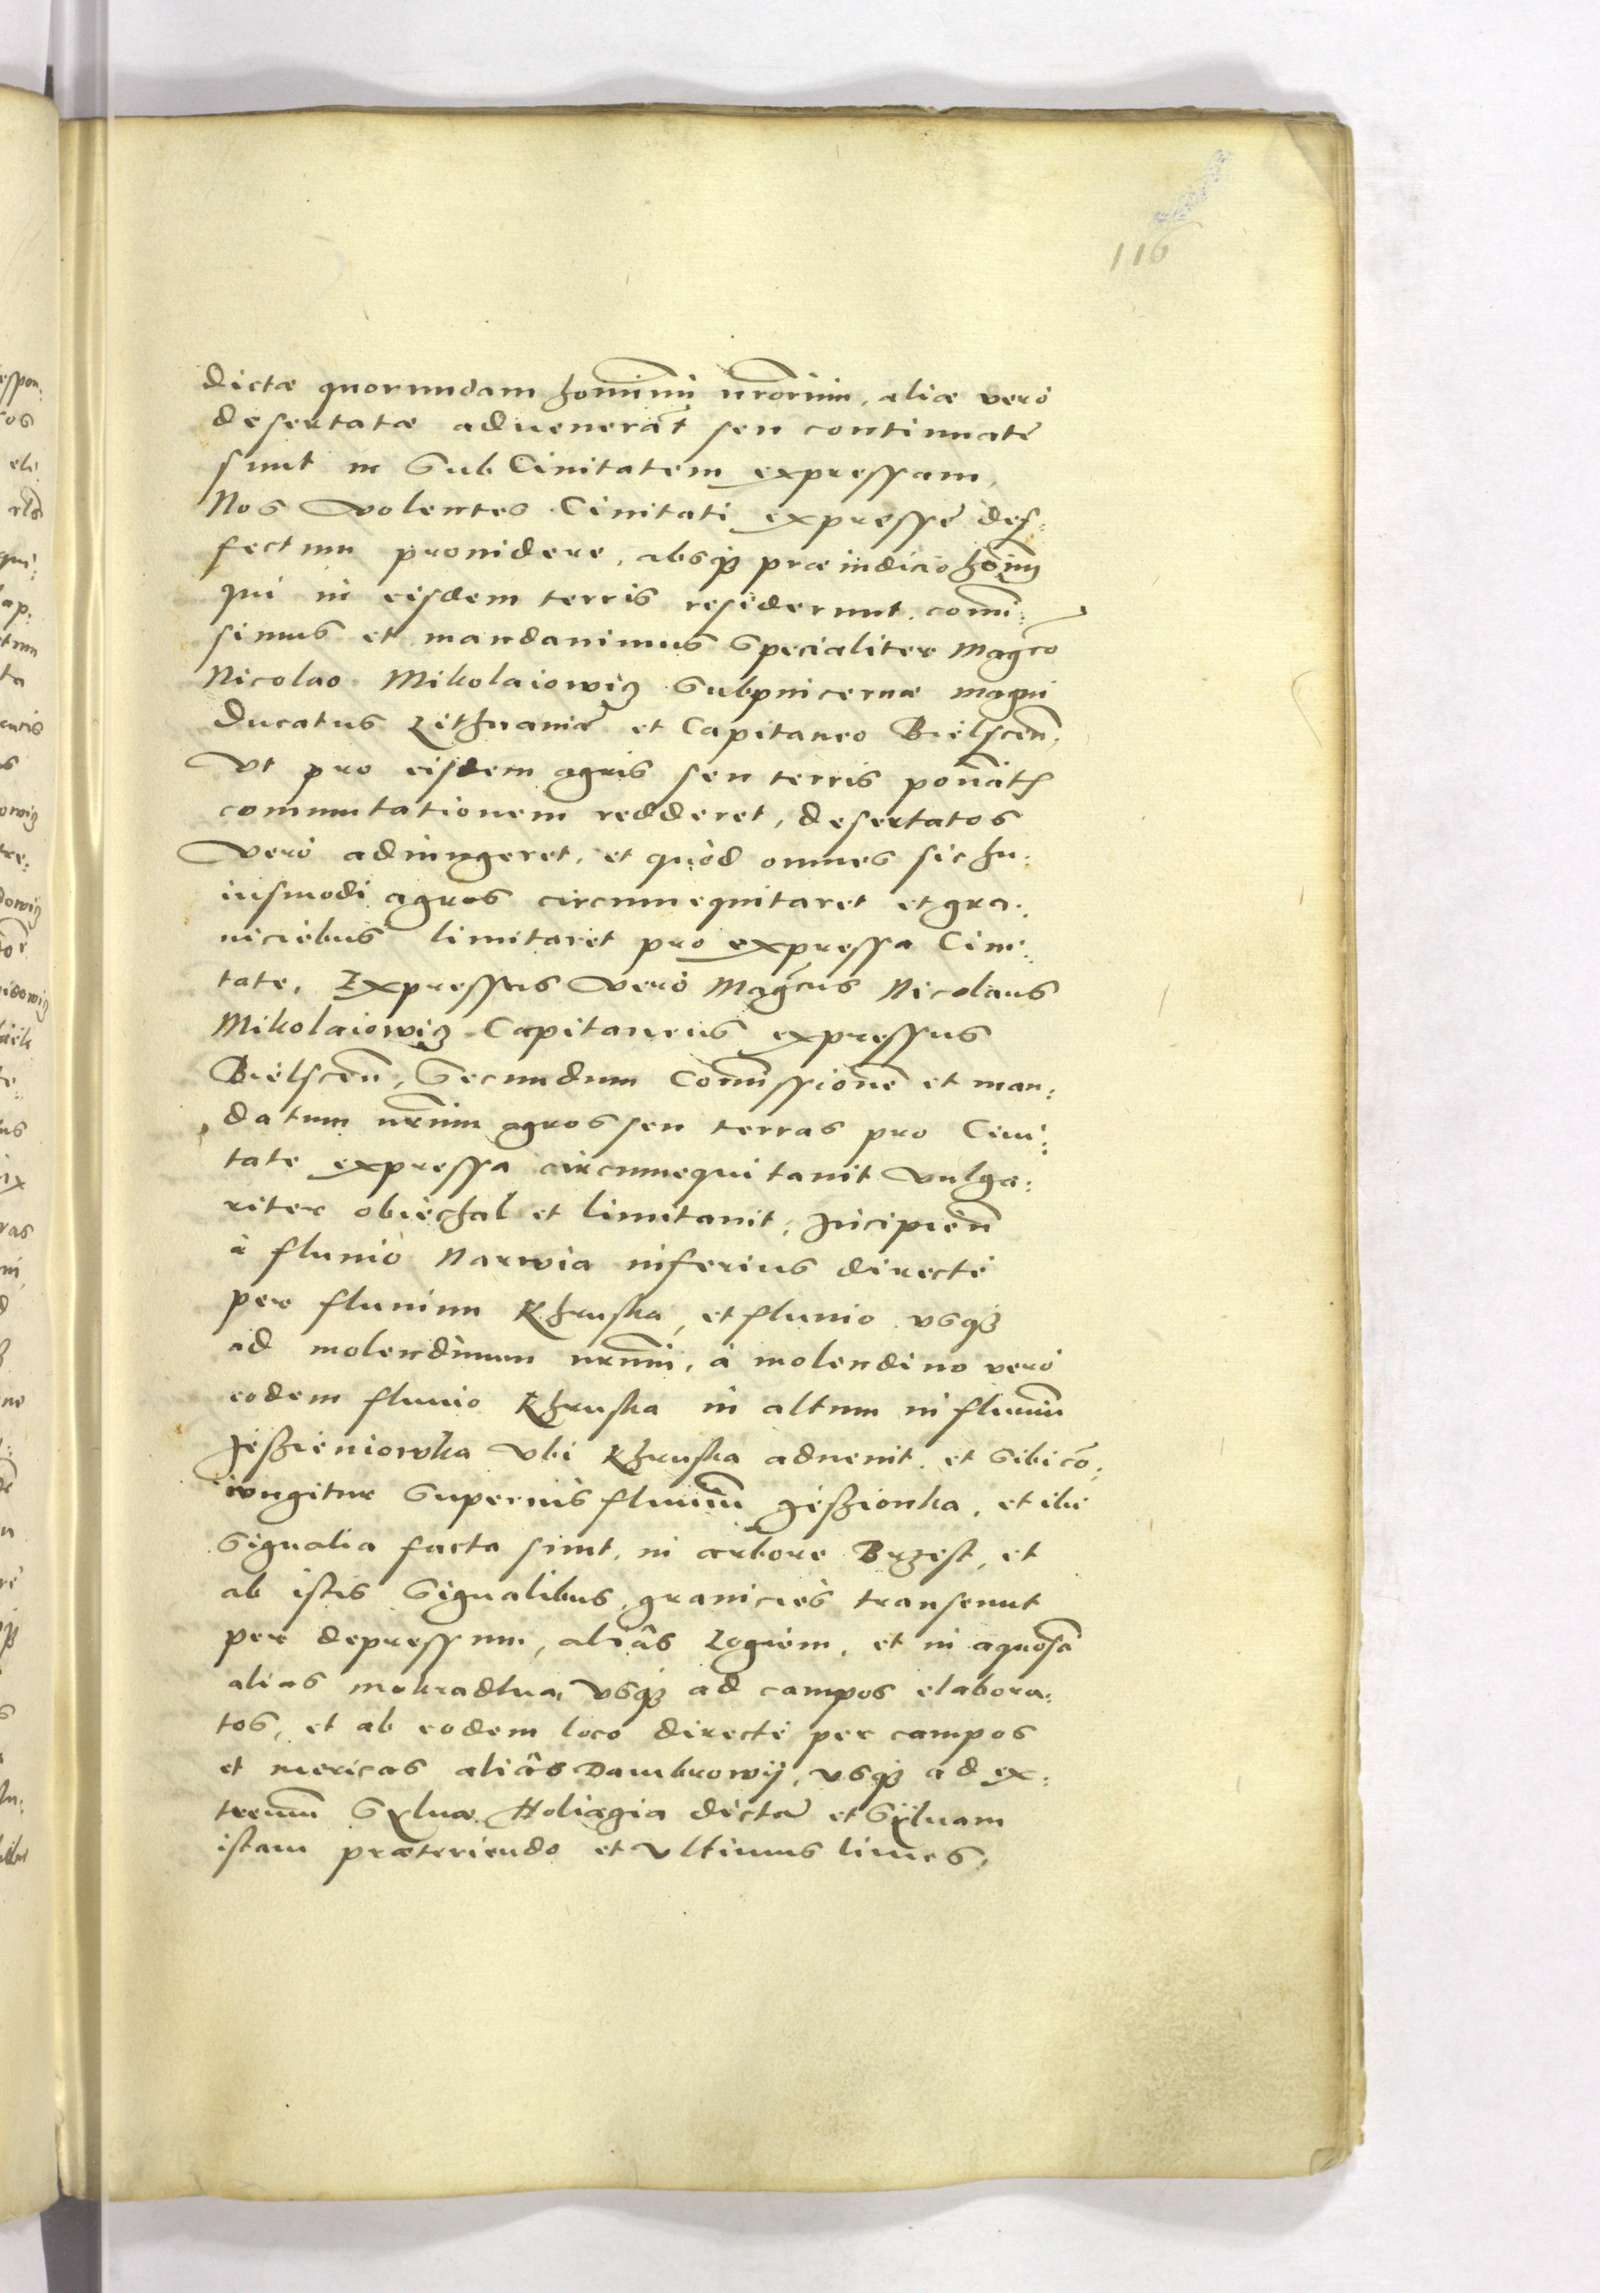 116
dictæ quorundam hominū nrorum, aliæ verò
desertatæ advenerāt seu continuatè
sunt in sub Ciuitatem expressam,
Nos volentes Ciuitati expressè def:
fectum prouidere, absq præiudicio hoīm
qui in eisdem terris residerunt, comi:
simus et mandauimus specialiter Magco
Nicolao Mikolaiowicz Subpincernæ magni
Ducatus Lithuaniæ et Capitaneo Bielscen,
Vt pro eisdem agris seu terris
commutationem redderet, desertatos
verò adiungeret, et quòd omnes sic hu:
iusmodi agros circumequitaret et gra:
niciebus limitaret pro expressa Ciui:
tate, Expressus verò Magcus Nicolaus
Mikolaiowicz Capitaneus expressus
Bielscen, Secundum Comissionē et man:
datum nrum agros seu terras pro Ciui:
tate expressa circumequitauit vulga:
riter obiechal et limitauit, Incipien
à fluuio Narwia inferius directè
per fluuium Khruska, et fluuio vsq
ad molendinum nrum, à molendino verò
eodem fluuio Khruska in altum in fluuiū
Jeszieniowka vbi Khruska aduenit, et sibi cō:
iungitur superius fluuiū Jeszionka, et ibi
signalia facta sunt, in arbore Brzest, et
ab istis signalibus, granicies transeunt
per depressum, aliâs Logiem, et in aquosā
alias mokradlua, vsq ad campos elabora:
tos, et ab eodem loco directè per campos
et mericas aliâs Dambrowy, vsq ad ex:
tremū Syluæ Holiagia dictæ et Syluam
istam præteriendo et vltimus limes,